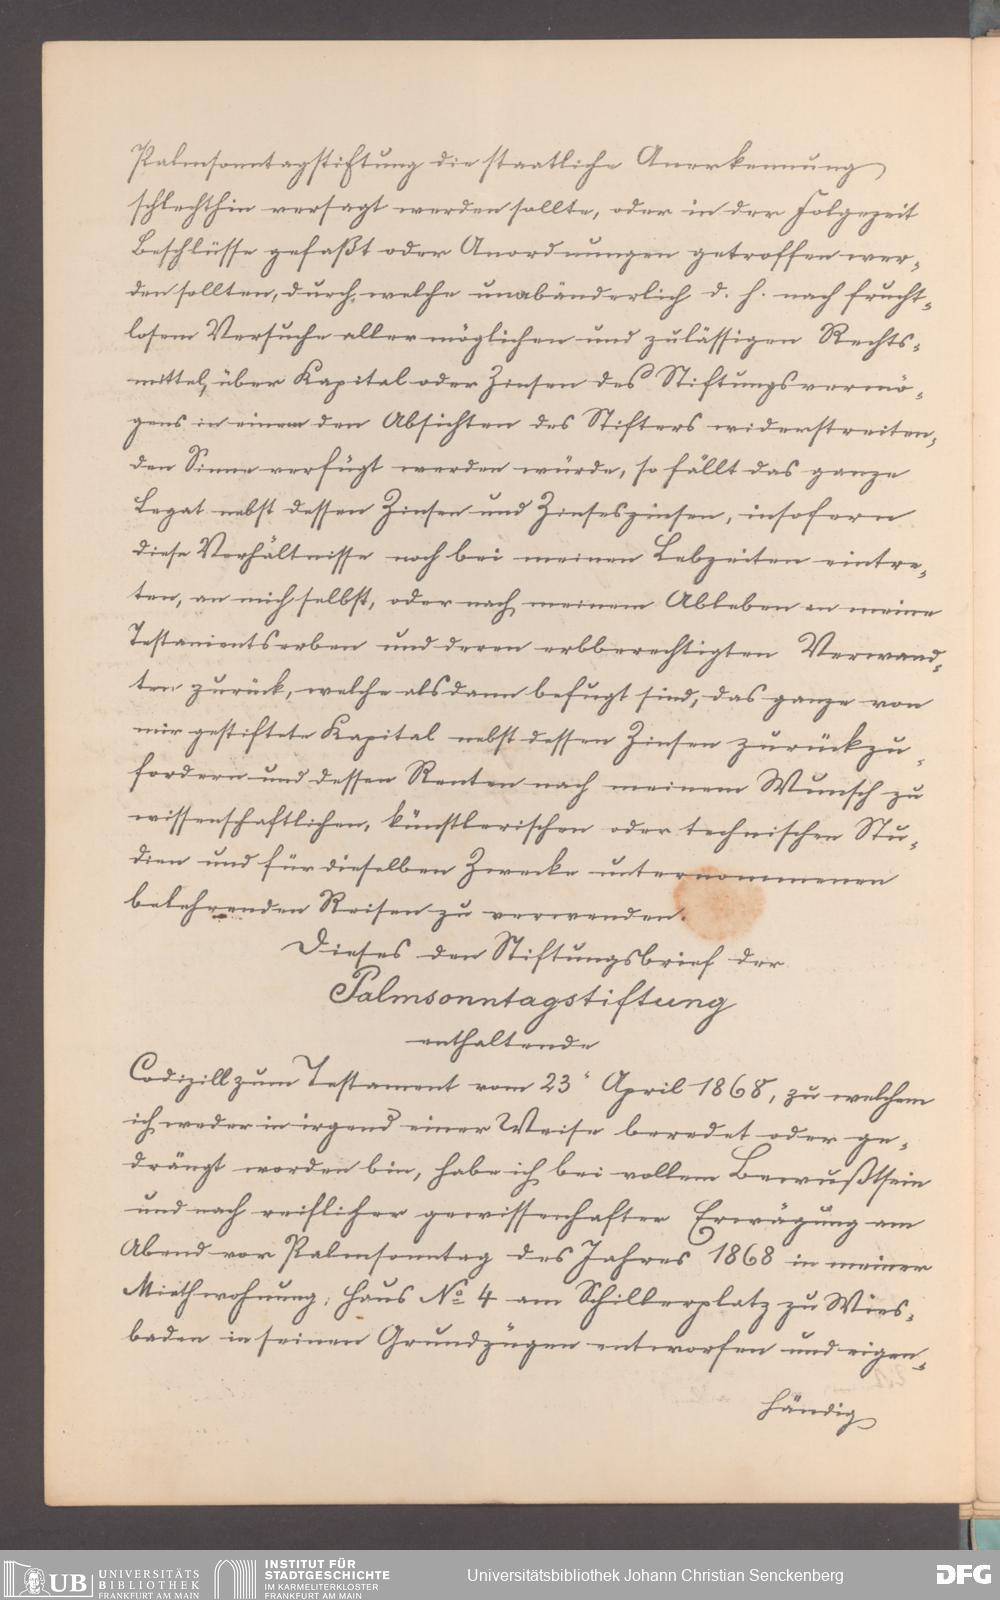 Palmsonntagstiftung die staatliche Anerkennung
schlechthin versagt werden sollte, oder in der Folgezeit
Beschlüsse gefaßt oder Anordnungen getroffen wer-
den sollten, durch welche unabänderlich d. h. nach frucht-
losem Versuche aller möglichen und zulässigen Rechts-
mittel, über Kapital oder Zinsen des Stiftungsvermö-
gens in einem den Absichten des Stifters widerstreiten-
den Sinne verfügt werden würde, so fällt das ganze
Legat nebst dessen Zinsen und Zinseszinsen, insofern
diese Verhältnisse noch bei meinen Lebzeiten eintre-
ten, an mich selbst, oder nach meinem Ableben an meine
Testamentserben und deren erbberechtigten Verwand-
ten zurück, welche alsdann befugt sind, das ganze von
mir gestiftete Kapital nebst dessen Zinsen zurückzu-
fordern und dessen Renten nach meinem Wunsch zu
wissenschaftlichen, künstlerischen oder technischen Stu-
dien und für dieselben Zwecke unternommenen
belehrenden Reisen zu verwenden.
Dieses den Stiftungsbrief der
Palmsonntagstiftung
enthaltende
Codizill zum Testament vom 23. April 1868, zu welchem
ich weder in irgend einer Weise beredet oder ge-
drängt worden bin, habe ich bei vollem Bewußtsein
und nach reiflicher gewissenhafter Erwägung am
Abend vor Palmsonntag des Jahres 1868 in meiner
Miethwohnung, Haus No 4 am Schillerplatz zu Wies-
baden in seinen Grundzügen entworfen und eigen-
händig
UB UNIVERSITÄTS
BIBLIOTHEK
FRANKFURT AM MAIN
INSTITUT FÜR
STADTGESCHICHTE
IM KARMELITERKLOSTER
FRANKFURT AM MAIN
Universitätsbibliothek Johann Christian Senckenberg
DFG